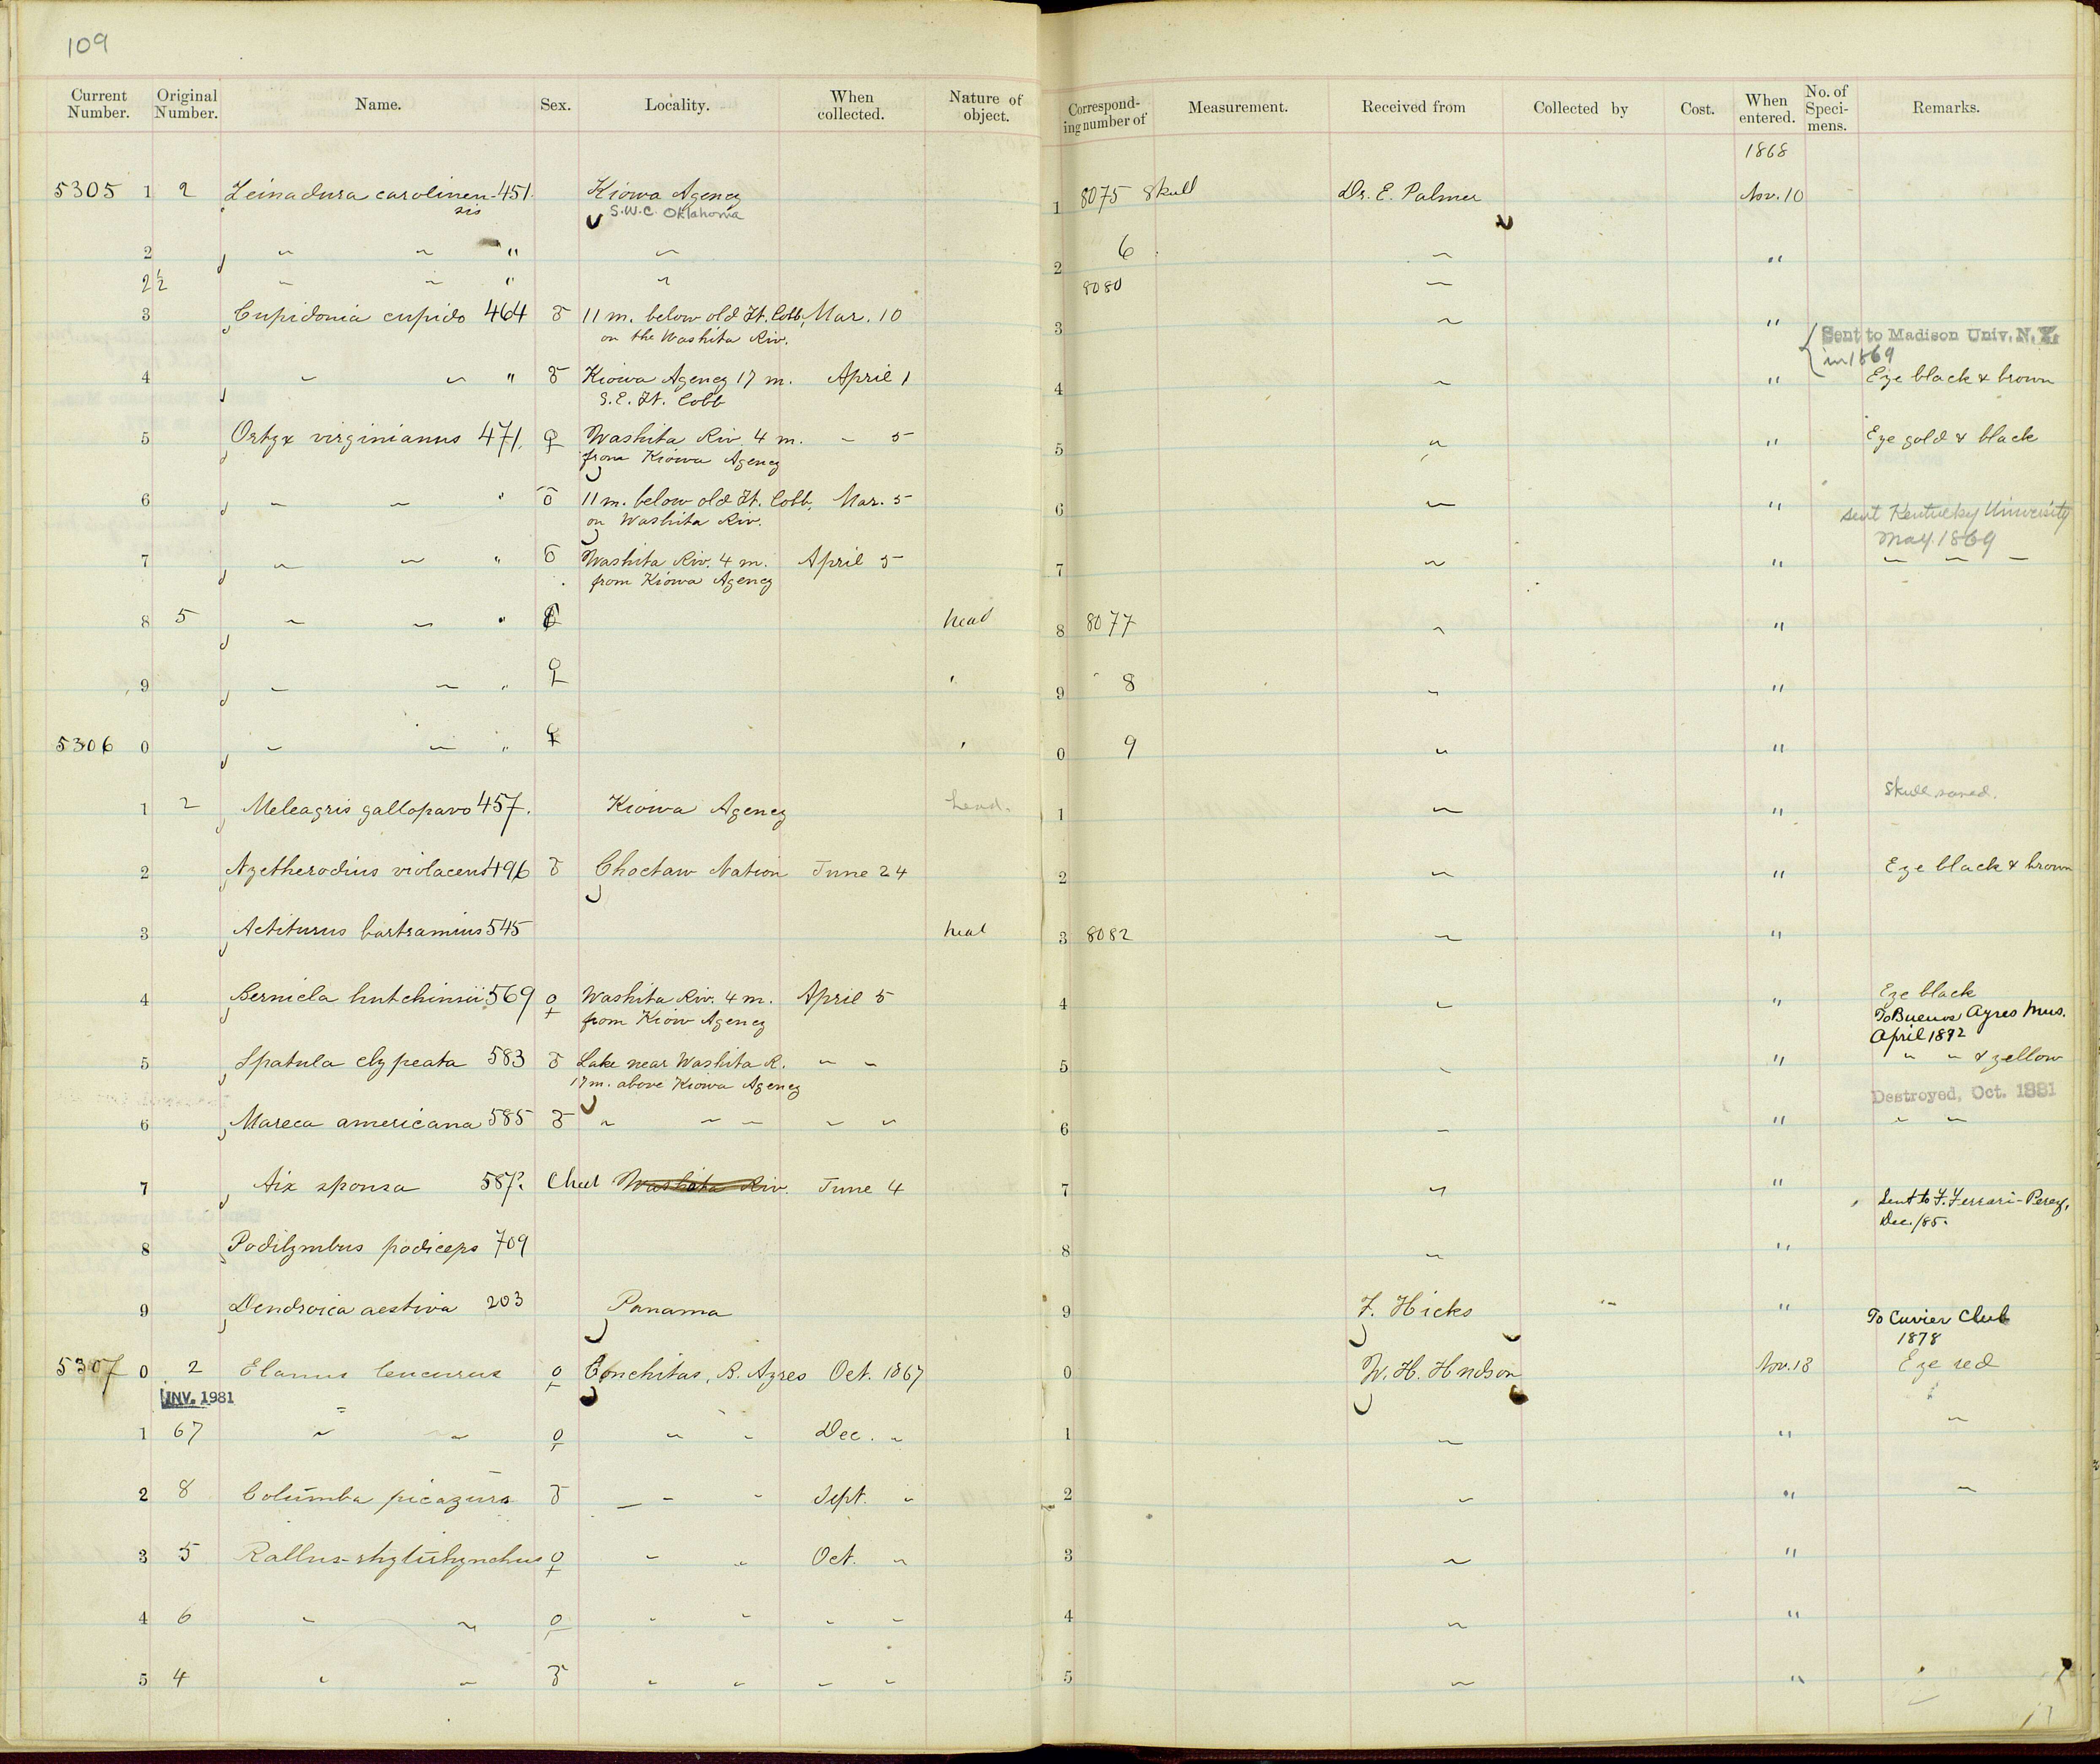 109
Current Number. Original Number. Name. Sex. Locality. When collected. Nature of object. Correspond-ing number of Measurement. Received from Collected by Cost. When entered. No. of Speci-mens. Remarks.
1868
5305 1 2 Zeinadura carolinen- 451. Kiowa Agency 1 8075 Skull Dr. E. Palmer Nov. 10
sis S.W.C. Oklahoma
2 " " " " 2 6 " "
2½ " " " " 8080 "
3 Cupidonia cupido 464 ♂ 11 m. below old Ft. Cobb, Mar. 10 3 " "
on the Washita Riv. Sent to Madison Univ. N.Y.
in 1869
4 " " " ♂ Kiowa Agency 17 m. April 1 4 " " Eye black & brown
S.E. Ft. Cobb
5 Ortyx virginianus 471. ♀ Washita Riv. 4 m. " 5 5 " " Eye gold & black
from Kiowa Agency
6 " " " ♂ 11 m. below old Ft. Cobb, Mar. 5 6 " "
on Washita Riv. sent Kentucky University
May. 1869
7 " " " ♂ Washita Riv. 4 m. April 5 7 " " " " "
from Kiowa Agency
8 5 " " " head 8 8077 " "
9 " " " ♀ " 9 8 " "
5306 0 " " " ♀ " 0 9 " "
Skull saved.
1 2 Meleagris gallopavo 457. Kiowa Agency head. 1 " "
2 Nyctherodius violaceus 496 ♂ Choctaw Nation June 24 2 " " Eye black & brown
3 Actiturus bartramius 545 head 3 8082 " "
4 Bernicla hutchinsii 569 ♀ Washita Riv. 4 m. April 5 4 " " Eye black
from Kiow Agency To Buenos Ayres Mus.
April 1892
5 Spatula clypeata 583 ♂ Lake near Washita R. " " 5 " " " " & yellow
17 m. above Kiowa Agency
Destroyed, Oct. 1881
6 Mareca americana 585 ♂ " " " " " 6 " " " "
7 Aix sponsa 587. Washita Riv. June 4 7 " "
Sent to F. Ferrari-Perez,
Dec. /85.
8 Podilymbus podiceps 709 8 " "
9 Dendroica aestiva 203 Panama 9 F. Hicks " "
To Cuvier Club
1878
5307 0 2 Elanus leucurus ♀ Conchitas, B. Ayres Oct. 1867 0 W. H. Hudson Nov. 18 Eye red
INV. 1981
1 67 " " ♀ " " Dec. " 1 " " "
2 8 Columba picazuro ♂ " " Sept. " 2 " " "
3 5 Rallus rhytirhynchus ♀ " " Oct. " 3 " "
4 6 " " ♀ " " " " 4 " "
5 4 " " ♂ " " " " 5 " "